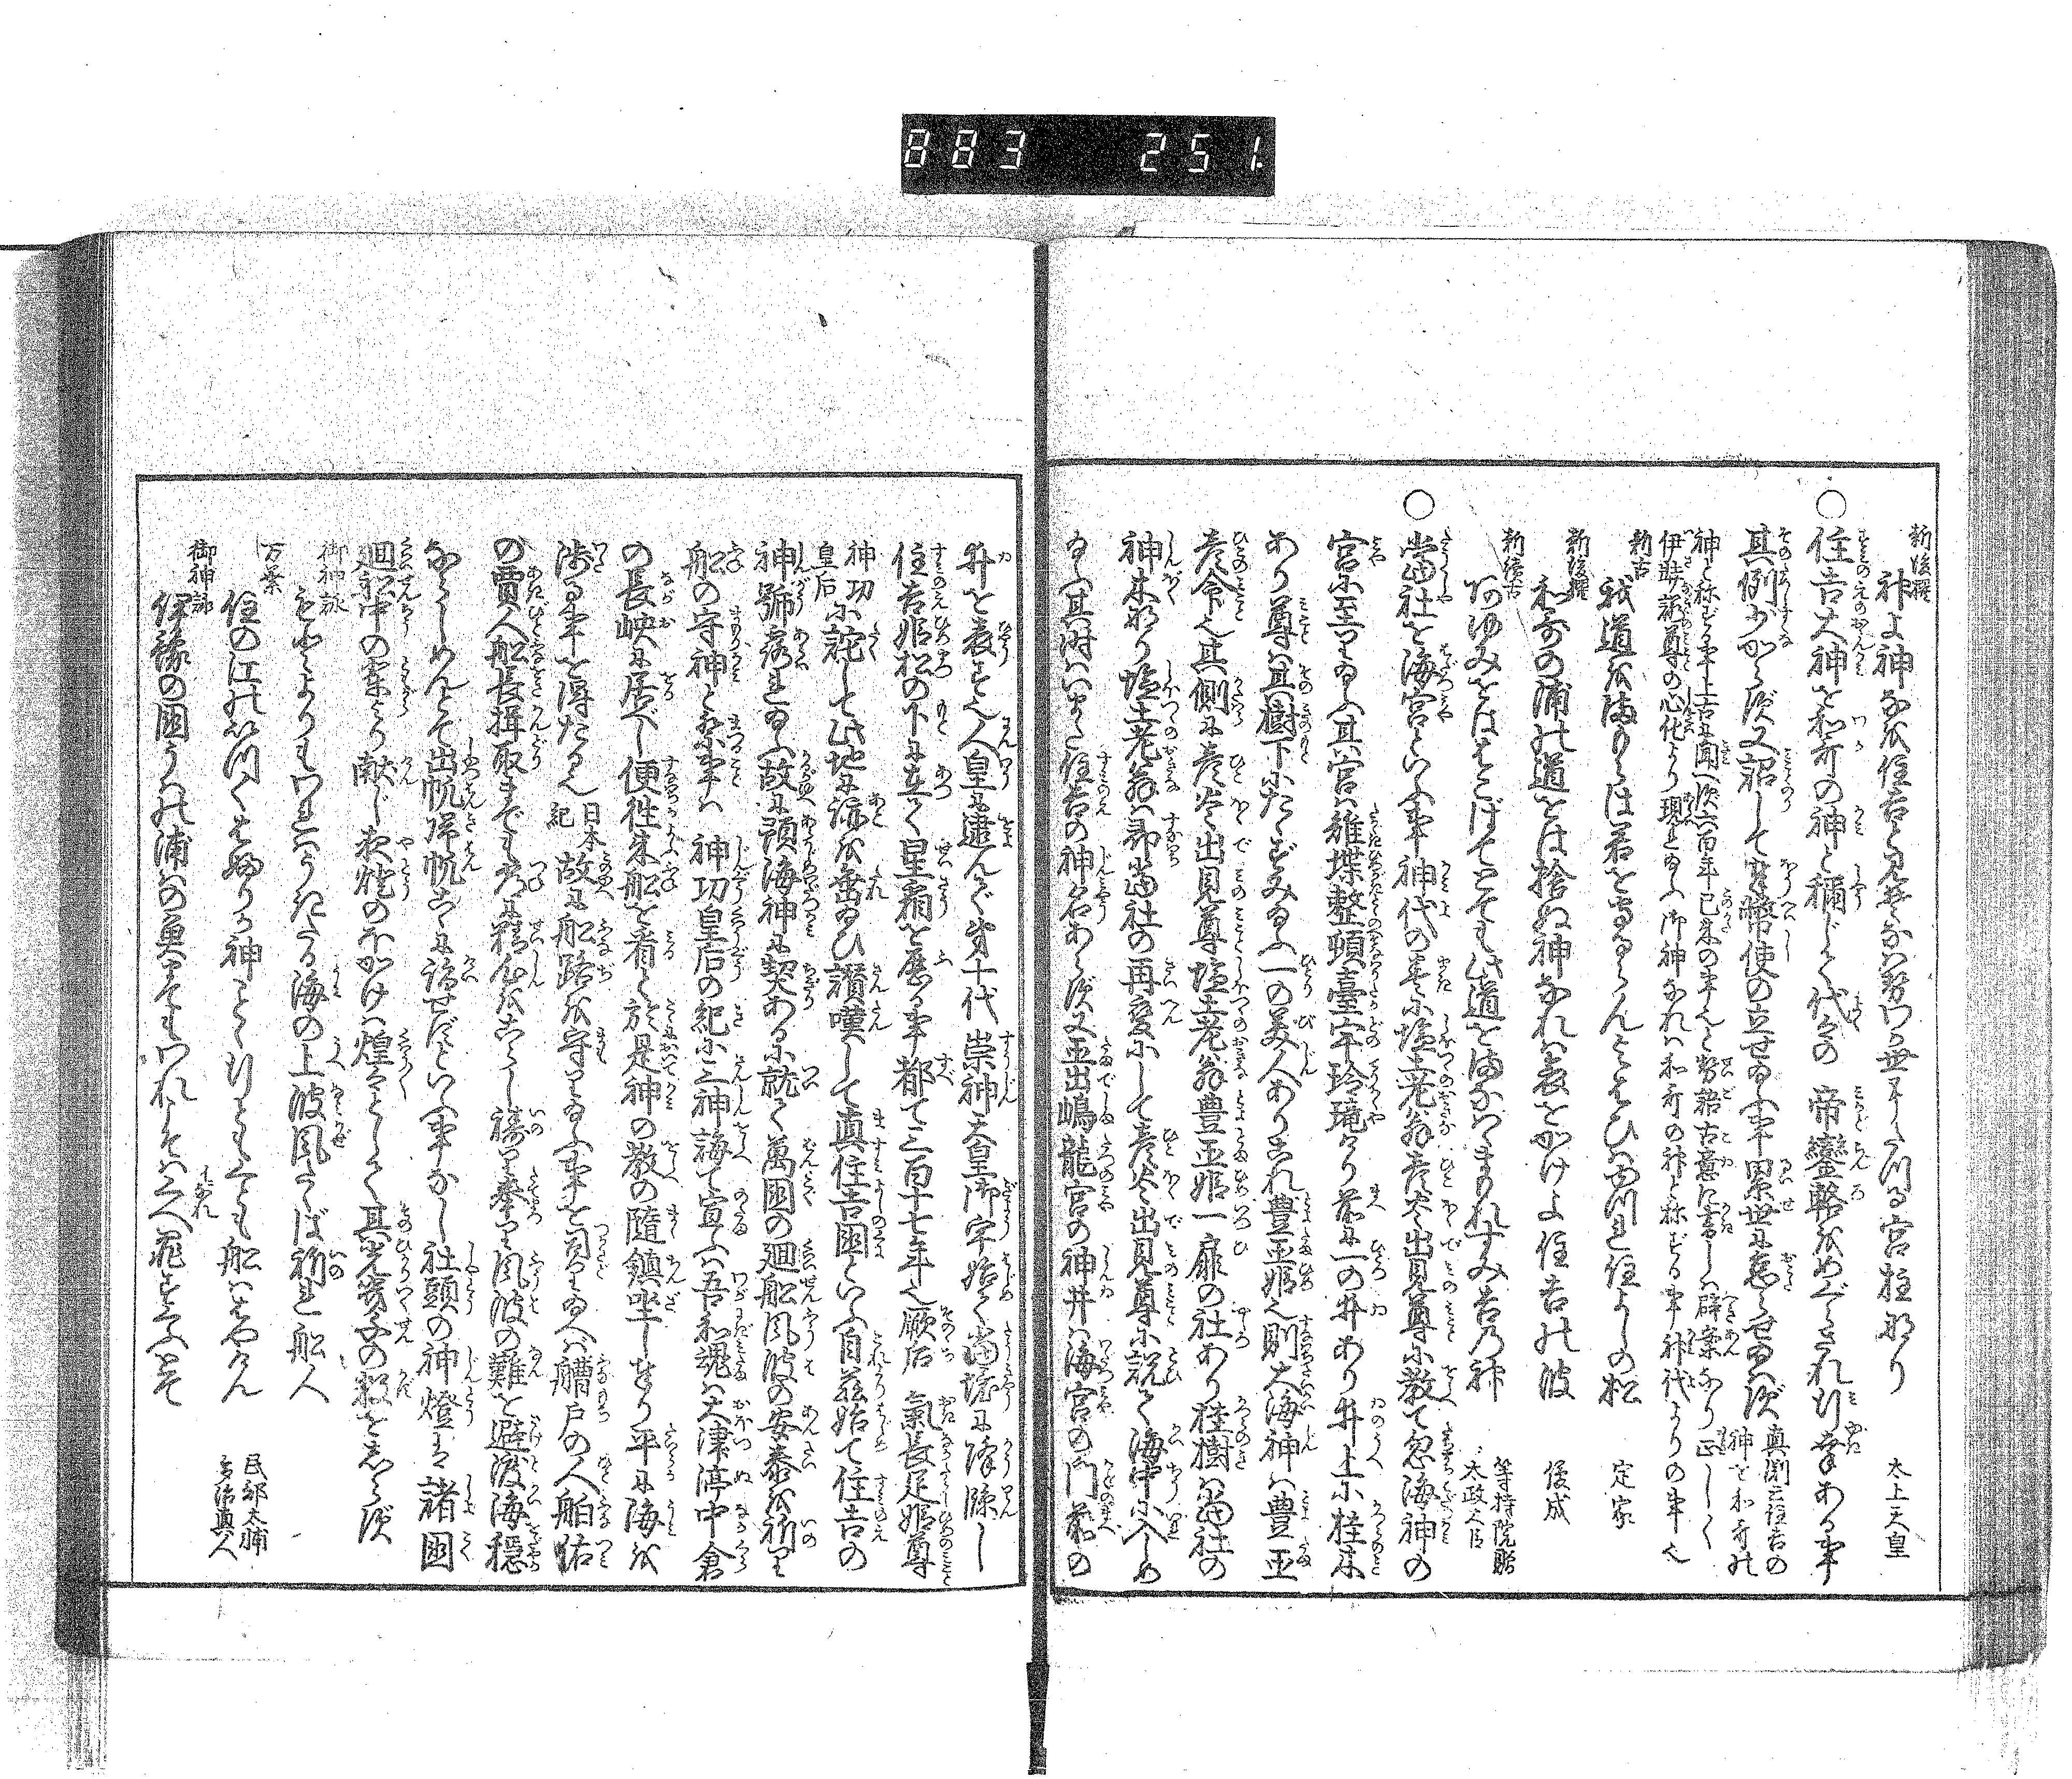 883 251
新後撰
神よ神なほ住吉と見そなはせわか世にたつる宮柱なり 太上天皇
○住吉大神を和哥の神と稱じて代々の帝鑾輅をめぐらされ行幸ある事
其例少からず又詔して奉幣使の立せ給ふ事累世に怠らせ給はず 真渕云住吉の神を和哥の
神と称ずる事上古に聞へず六百年已来の事也と勢語古意に書しは僻案なり正しく
伊弉諾尊の心化より現じ給ふ御神なれは和哥の神と称ずる事神代よりの事也
新古
我道を守らは君を守るらんよはひはゆづれ住よしの松 定家
新後撰
和哥の浦の道をは捨ぬ神なれは哀をかけよ住吉の波 俊成
新続古
あゆみをははこばてとても此道を守らはまもれすみ吉乃神 等持院贈太政大臣
○當社を海宮といふ事神代の巻に塩土老翁彦火々出見尊に教て忽海神の
宮に至り給ふ其宮は雉堞整頓臺宇玲瓏たり前に一の井あり井上に桂木
あり尊は其樹下にたゝずみ給ふ一の美人ありこれ豊玉姫也則大海神は豊玉
彦命也其側に彦火々出見尊塩土老翁豊玉姫一扉の社あり桂樹は當社の
神木なり塩土老翁は即當社の再変にして彦火々出見尊に説て海中に入しめ
給へ其時はいまた住吉の神名あらず又玉出嶋龍宮の神井は海宮の門前の
井を表す也人皇に逮んで第十代崇神天皇御宇始て當域に降臨し
住吉姫松の下に立て星霜を歴る事都て三百十七年也厥后氣長足姫尊
神功皇后に詫して此地に跡を垂給ひ讃嘆して真住吉國といふ自茲始て住吉の
神号顕れ給ふ故に領海神に契あるに就て萬國の廻舩風波の安泰を祈り
舩の守神と祭事は神功皇后の紀に三神誨て宣ふは吾和魂は大津渟中倉
の長峡に居へし便往来舩を看と於是神の教の隨鎮坐しませり平に海を
渉る事を得たる也 日本紀 故に舩路を守り給ふ事を司り給へは艚戸の人舶估
の賈人舩長揖取までも常に精心をこらし祷り奉り風波の難を避渡海穏
ならしめんとて出帆帰帆こゝに詣せだといふ事なし社頭の神燈は諸國
廻舩中の輩より献じ夜燈のかゝげは煌々として其光幾千の数をしらず
御神詠
もとよりもわれこゝろたる海の上波風たゝば祈れ舩人
万葉
住の江のいつくはふりが神ことゝ行とも来とも舩ははやけん 民部太輔多治真人
御神詠
伊豫の国うわの浦はの魚まてもわれこそは人罪すくふとて